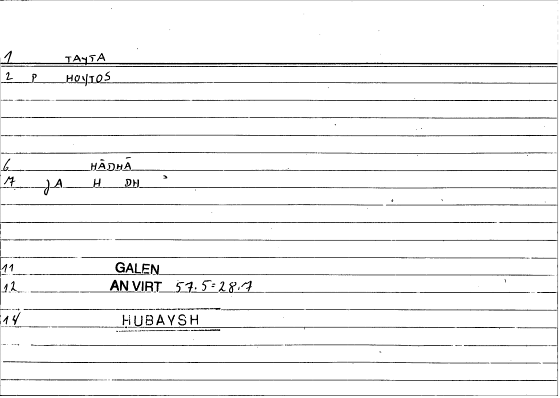 1 TAYTA
2 P HOYTOS
6 HĀDHĀ
7 JA H DH ʾ
11 GALEN
12 AN VIRT 57.5 = 28.7
14 HUBAYSH